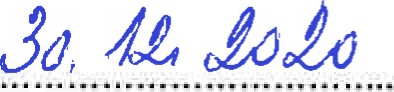 30. 12. 2020